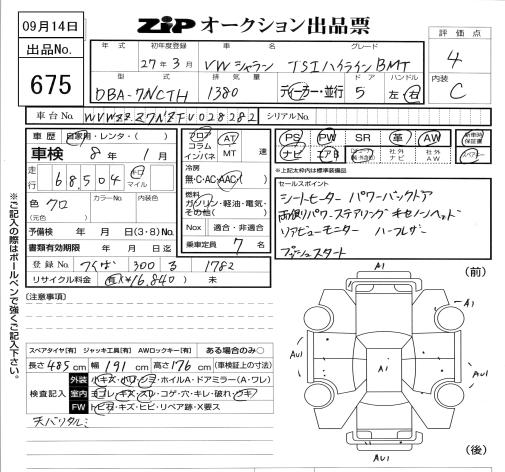 09月14日
ZiP オークション出品票
出品No.
675
年式 初年度登録 車名 グレード
27年3月 VW シャラン TSIハイライン BMT
型式 排気量 ドア ハンドル
DBA-7NCTH 1380 ディーラー・並行 5 左・右
評価点
4
内装
C
車台No. WVWZZZ7NZFV028282 シリアルNo.
車歴 自家用・レンタ・( )
車検 8年 1月
走行 68,504 キロ マイル
色 クロ (元色) カラーNo. 内装色
予備検 年 月 日(3・8)No.
書類有効期限 年 月 日迄
登録No. つくば 300 る 1782
リサイクル料金 有(¥16,840) 未
フロア コラム インパネ
AT MT 速
冷房
無・C・AC・AAC( )
燃料
ガソリン・軽油・電気・その他( )
Nox 適合・非適合
乗車定員 7名
PS PW SR 革 AW 新車時保証書
ナビ エアB 社外ナビ 社外AW
※上記太枠内は標準装備品
セールスポイント
シートヒーター パワーバックドア
両側パワースライディング キセノンヘッド
リアビューモニター ハーフレザー
プッシュスタート
※ご記入の際はボールペンで強くご記入下さい。
[注意事項]
スペアタイヤ[有] ジャッキ工具[有] AWロックキー[有] ある場合のみ○
長さ485cm 幅191cm 高さ176cm (車検証上の寸法)
検査記入
外装 小キズ・小凹・シミ・ホイルA・ドアミラー(A・ワレ)
室内 ヨゴレ・キズ・スレ・コゲ・穴・キレ・破れ・ウキ
FW トビ石・キズ・ヒビ・リペア跡・X要ス
天バリタルミ
(前)
A1
A1
AU1
A1
AU1
A1
AU1
(後)